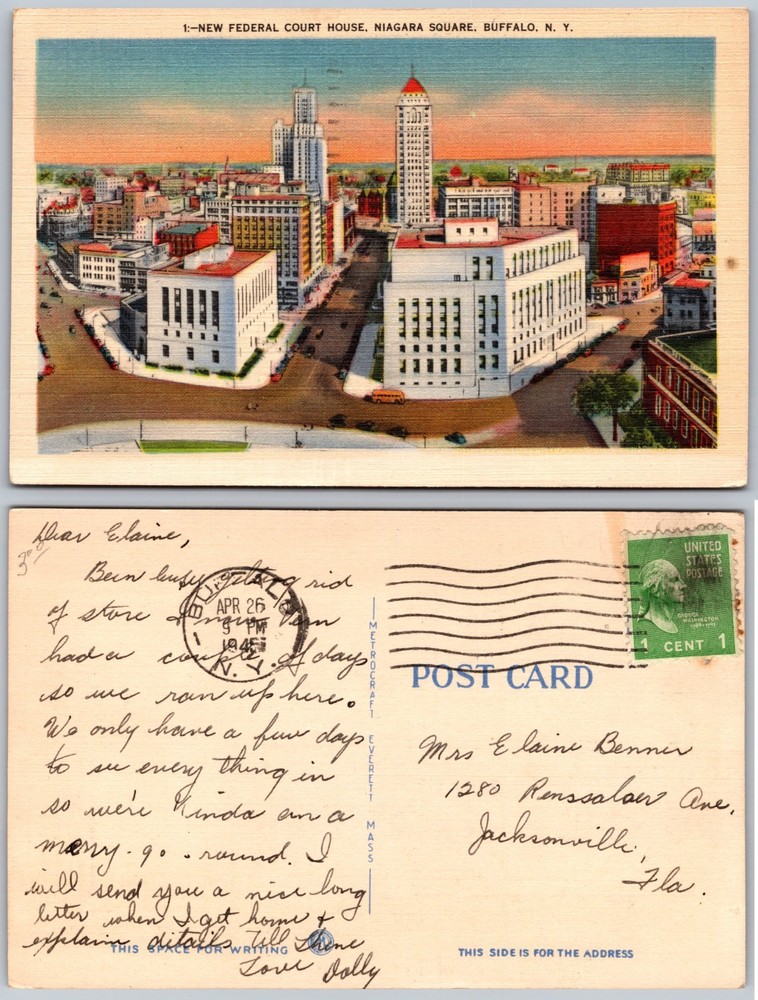 1:—NEW FEDERAL COURT HOUSE, NIAGARA SQUARE, BUFFALO, N. Y.
Dear Elaine,
Been busy getting rid
of store & now Vern
had a couple of days
so we ran up here.
We only have a few days
to see every thing in
so we're kinda on a
merry-go-round. I
will send you a nice long
letter when I get home &
explain details. Till then
Love Dolly
BUFFALO
APR 26
9 PM
N.Y.
UNITED
STATES
POSTAGE
GEORGE
WASHINGTON
1 CENT 1
POST CARD
METROCRAFT EVERETT MASS
Mrs Elaine Benner
1280 Renssalaer Ave,
Jacksonville,
Fla.
THIS SPACE FOR WRITING
THIS SIDE IS FOR THE ADDRESS